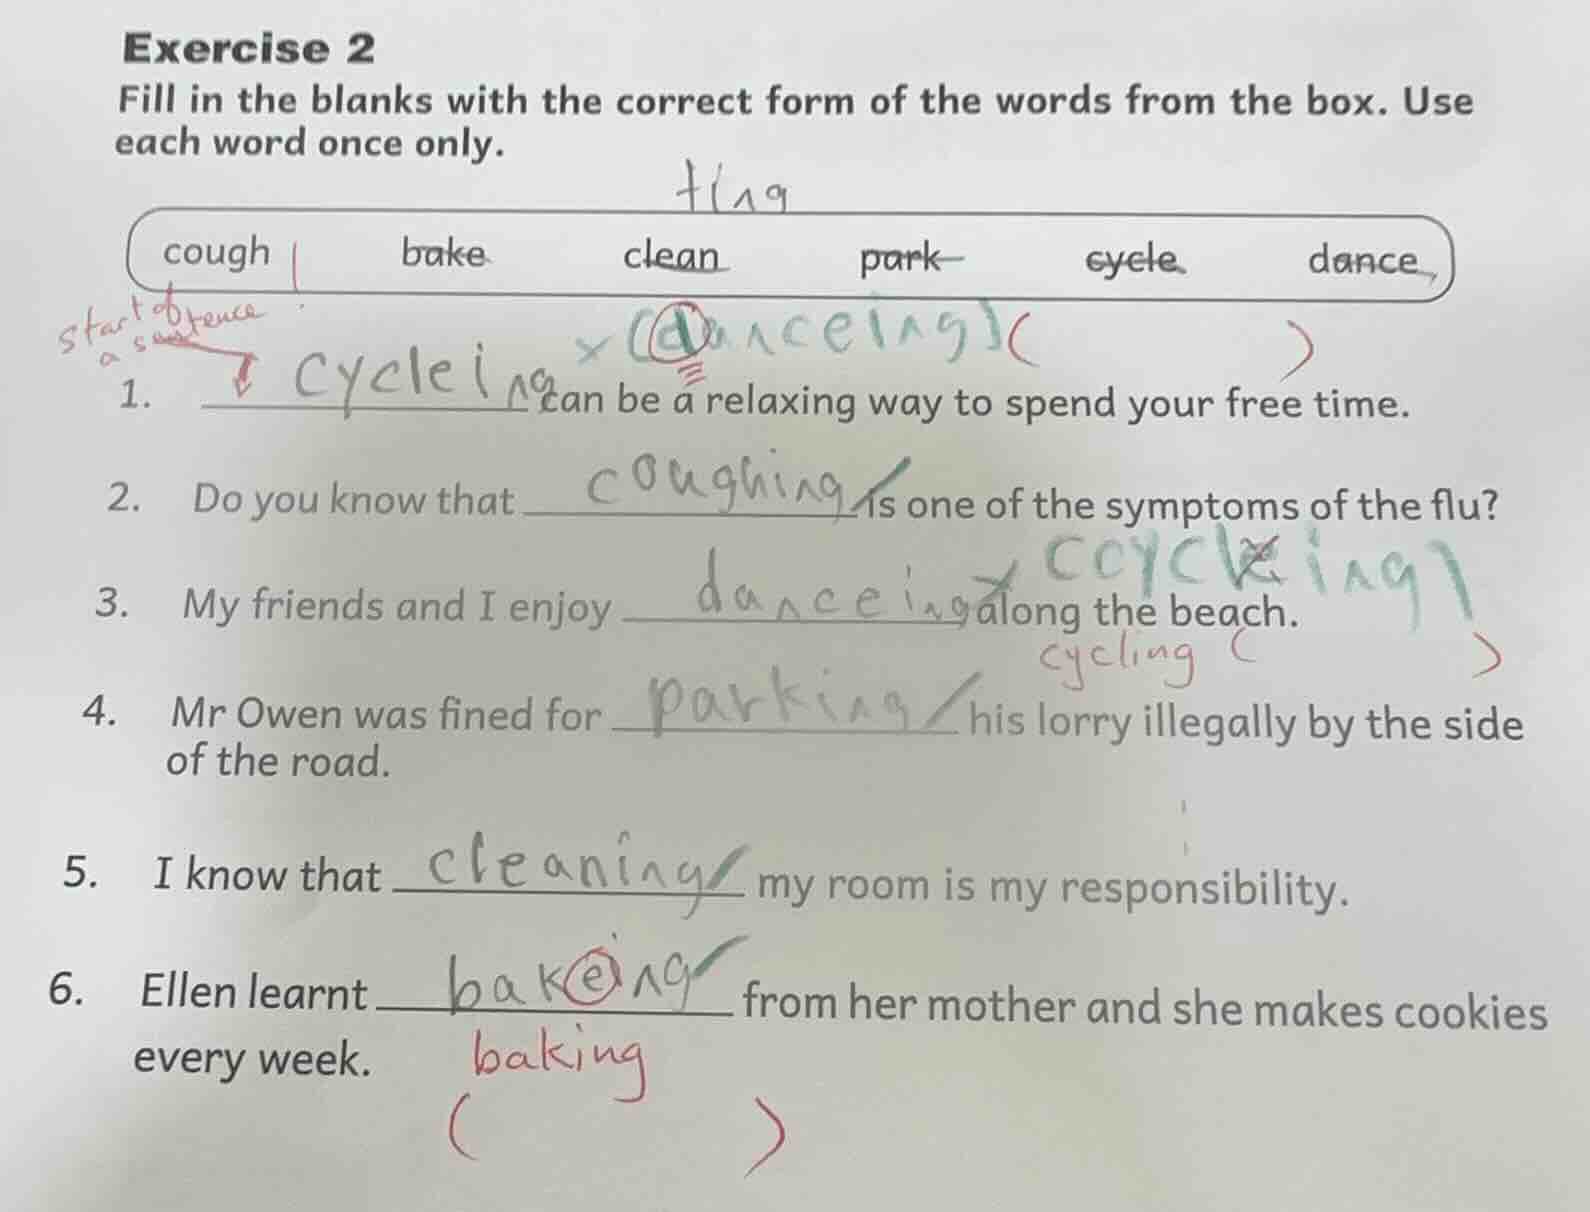 Exercise 2
Fill in the blanks with the correct form of the words from the box. Use
each word once only.
ting
cough bake clean park cycle dance
start of
a sentence
x (danceing) ( )
1. cycleing can be a relaxing way to spend your free time.
2. Do you know that coughing is one of the symptoms of the flu?
(cycleing)
3. My friends and I enjoy danceing x along the beach.
cycling ( )
4. Mr Owen was fined for parking his lorry illegally by the side
of the road.
5. I know that cleaning my room is my responsibility.
6. Ellen learnt bakeing from her mother and she makes cookies
every week. baking
( )